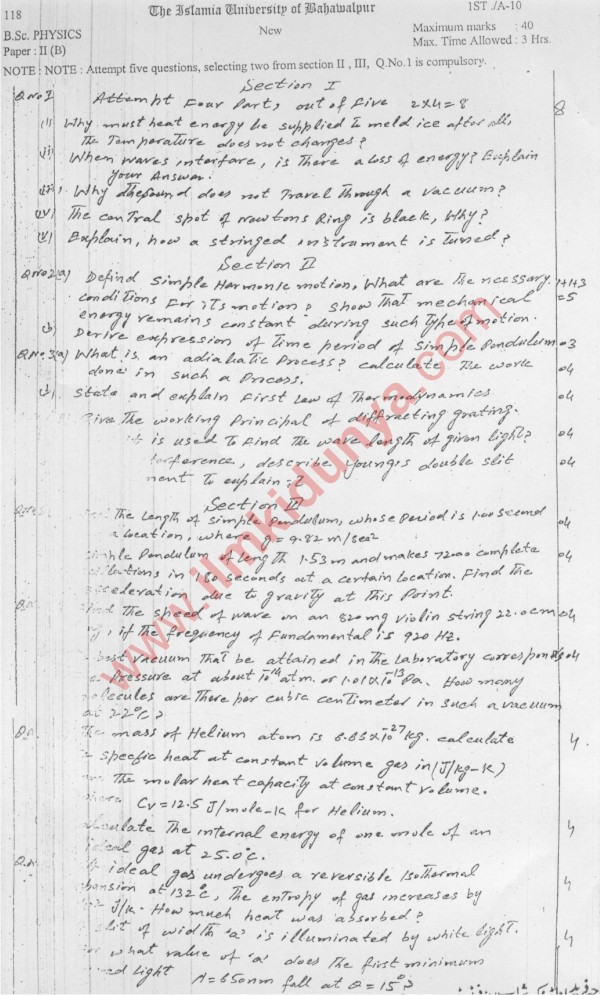 118
The Islamia University of Bahawalpur
1ST ./A-10
B.Sc. PHYSICS
New
Maximum marks : 40
Paper : II (B)
Max. Time Allowed : 3 Hrs.
NOTE : NOTE : Attempt five questions, selecting two from section II , III, Q.No.1 is compulsory.
Section I
Q No 1 Attempt Four Parts out of Five 2x4=8 8
(i) Why must heat energy be supplied to meld ice after all,
the Temperature does not changes?
(ii) When waves interfare, is there a loss of energy? Explain
your Answer.
(iii) Why the sound does not Travel Through a vacuum?
(iv) The central spot of newtons Ring is black, Why?
(v) Explain, how a stringed instrument is Tuned?
Section II
Q No 2(a) Defind Simple Harmonic motion, What are the ncessary 1+1+3
conditions For its motion? show that mechanical =5
energy remains constant during such Type of motion.
(b) Derive expression of Time period of Simple Pondulum 03
Q No. 3(a) What is an adiabatic Process? calculate The work 04
done in such a Process.
(b) State and explain First Law of Thermodynamics 04
Give The working Principal of diffracting grating.
it is used To Find The wave length of given light? 04
terference, describe younges double slit 04
ment To explain it?
Section III
The Length of Simple Pondulum, whose Period is 1.00 second 04
a location, where g = 9.82 m/sec2
imple Pondulum of Length 1.53 m and makes 72.00 complete 04
cillations in 180 seconds at a certain location. Find the
acceleration due to gravity at This Point.
ind The speed of wave on an 820 mg violin string 22.0 cm 04
, if The frequency of Fundamental is 920 HZ.
best vacuum That be attained in the Laboratory corresponds 04
a Pressure at about 10-14 atm. or 1.01x10-13 Pa. How many
olecules are There per cubic centimeter in such a vacuum
at 22°C?
The mass of Helium atom is 6.63x10-27 kg. calculate 4
specfic heat at constant volume gas in (J/kg-K)
The molar heat capacity at constant volume.
where Cv = 12.5 J/mole-K for Helium.
alculate The internal energy of one mole of an 4
ideal gas at 25.0°C.
ideal gas undergoes a reversible Isothermal 4
pansion at 132°C, The entropy of gas increases by
J/K. How much heat was absorbed?
slit of width 'a' is illuminated by white light. 4
what value of 'a' does the first minimum
red light λ = 650nm fall at θ = 15°?
www.ilmkidunya.com